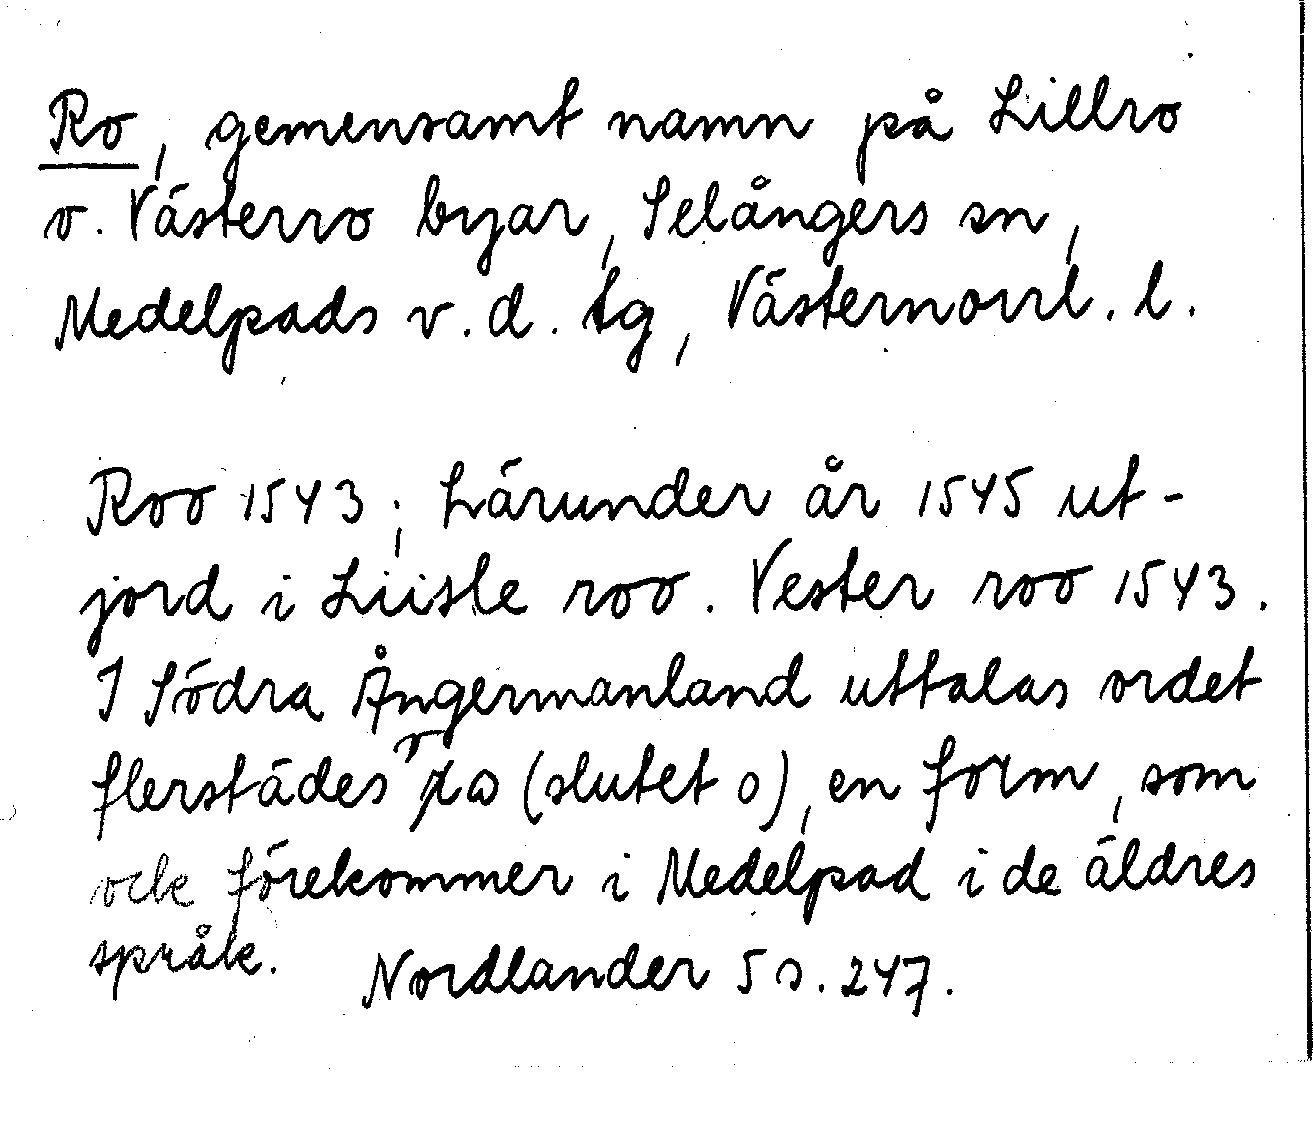 Ro, gemensamt namn på Lillro
o. Västerro byar, Selångers sn,
Medelpads v. d. tg, Västernorrl. l.
Roo 1543; härunder år 1545 ut-
jord i Liisle roo. Vester roo 1543.
I Södra Ångermanland uttalas ordet
flerstädes (slutet o), en form, som
ock förekommer i Medelpad i de äldres
språk. Nordlander 5 s. 247.